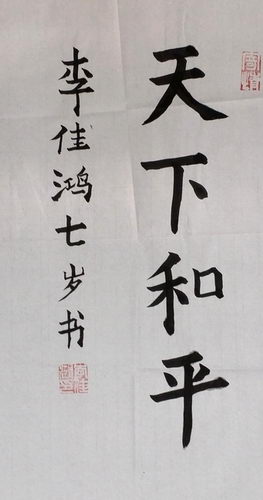 天下和平
李佳鸿七岁书